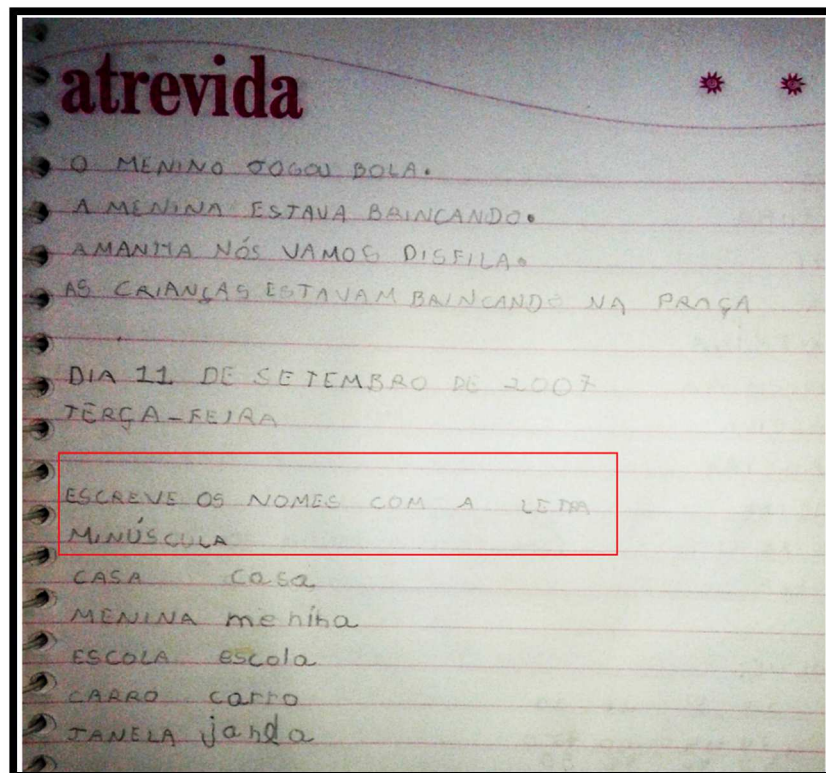 atrevida
O MENINO JOGOU BOLA.
A MENINA ESTAVA BRINCANDO.
AMANHÃ NÓS VAMOS DISFILA.
AS CRIANÇAS ESTAVAM BRINCANDO NA PRAÇA
DIA 11 DE SETEMBRO DE 2007
TERÇA-FEIRA
ESCREVE OS NOMES COM A LETRA
MINÚSCULA
CASA casa
MENINA menina
ESCOLA escola
CARRO carro
JANELA janela